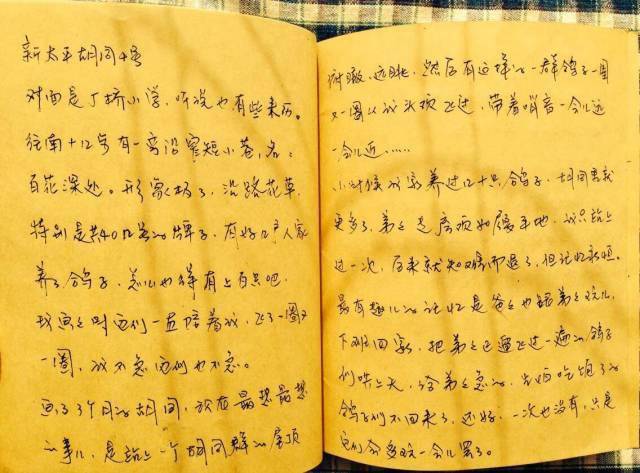 新太平胡同4号
对面是丁桥小学，听说也有些来历。
往南十二号有一旁沿窄短小巷，名：
百花深处。形象极了，沿路花草，
特别是共40门的牌子，有好几户人家
养了鸽子，怎么也得有上百只吧，
我画它叫它们一直陪着我，飞了一圈又
一圈，我不急它们也不急。
画了3个月的胡同，我在最想最想
的事儿，是站上一个胡同群的屋顶
俯瞰，远眺，然后有这样的一群鸽子一圈
又一圈从我头顶飞过，带着哨音一会儿远
一会儿近……
小时候我家养过几十只鸽子，胡同里就
更多了，弟弟是房顶如履平地，我只站上
过一次，后来就知难而退了，但记忆永恒。
最有趣儿的记忆是爸爸也跟弟弟玩儿，
下班回家，把弟弟已遛飞过一遍的鸽子
们哄上天，给弟弟急的，生怕吃饱了的
鸽子们不回来了，还好，一次也没有，只是
它们会多玩一会儿罢了。